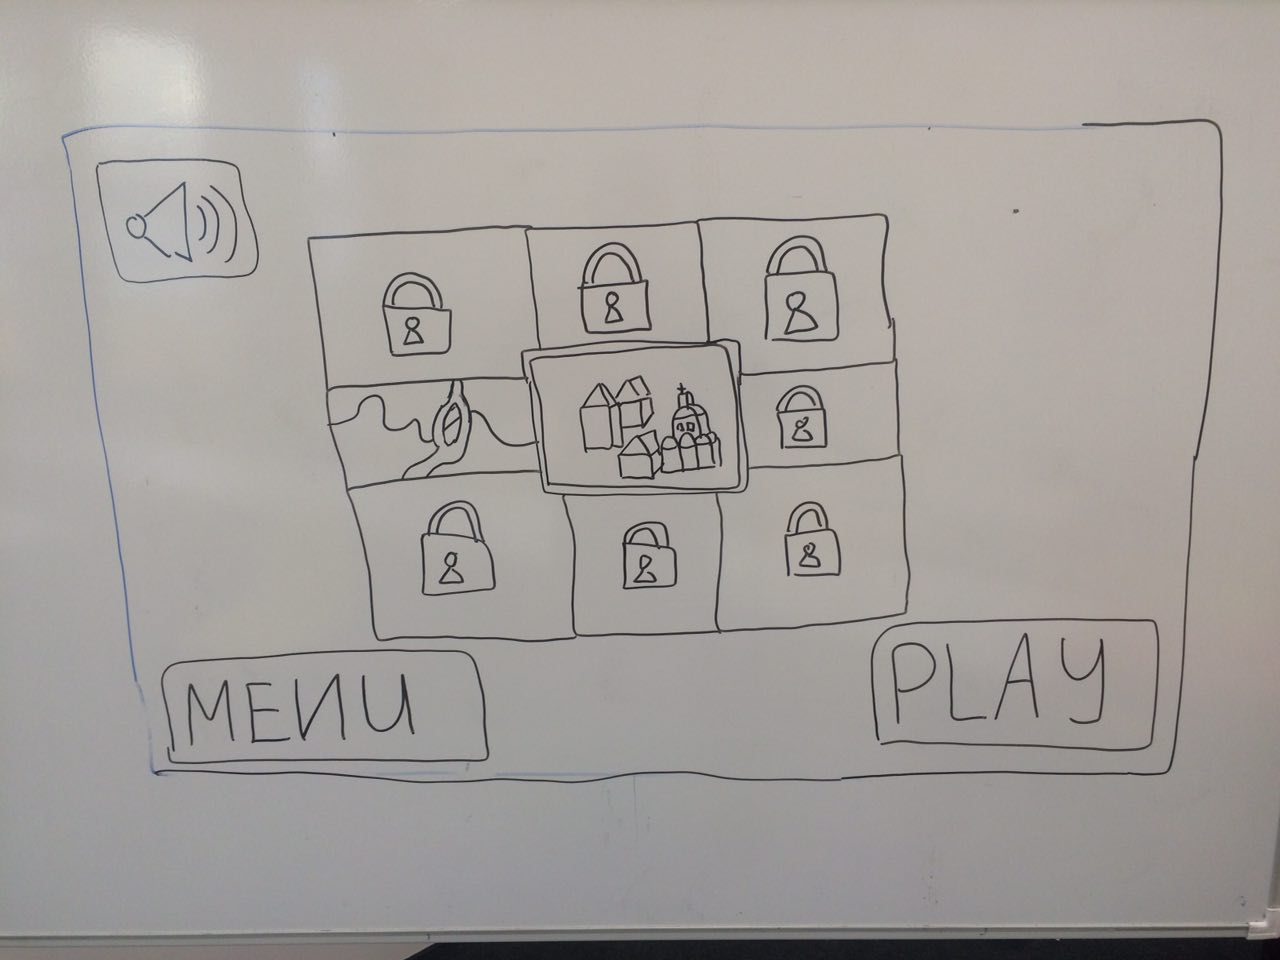 MENU
PLAY